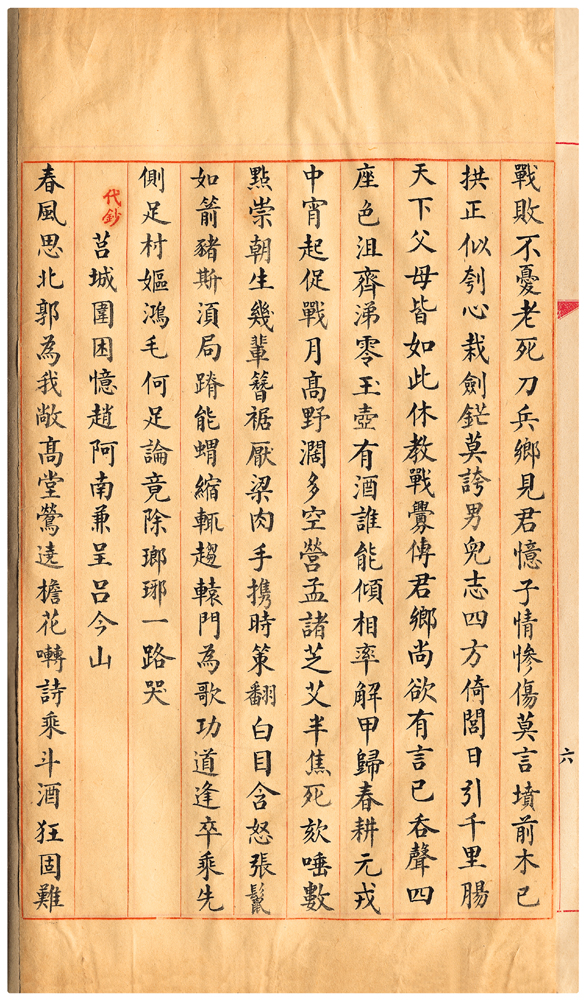 戰敗不憂老死刀兵鄉見君憶子情慘傷莫言墳前木已
拱正似刳心栽劍鋩莫誇男兒志四方倚閭日引千里腸
天下父母皆如此休教戰釁傳君鄉尚欲有言已吞聲四
座色沮齊涕零玉壺有酒誰能傾相率解甲歸春耕元戎
中宵起促戰月高野濶多空營孟諸芝艾半焦死欬唾數
點崇朝生幾輩簪裾厭梁肉手攜時策翻白目含怒張鬣
如箭豬斯須局蹐能蝟縮輒趨轅門為歌功道逢卒乘先
側足村嫗鴻毛何足論竟除瑯琊一路哭
代鈔
莒城圍困憶趙阿南兼呈呂今山
春風思北郭為我敞高堂鶯遶檐花囀詩乘斗酒狂固難
六